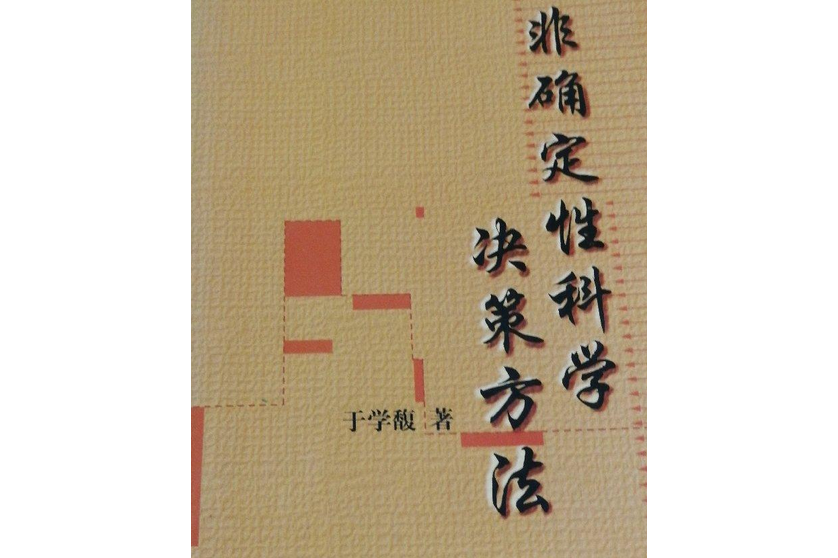 非确定性科学
决策方法
于学馥 著